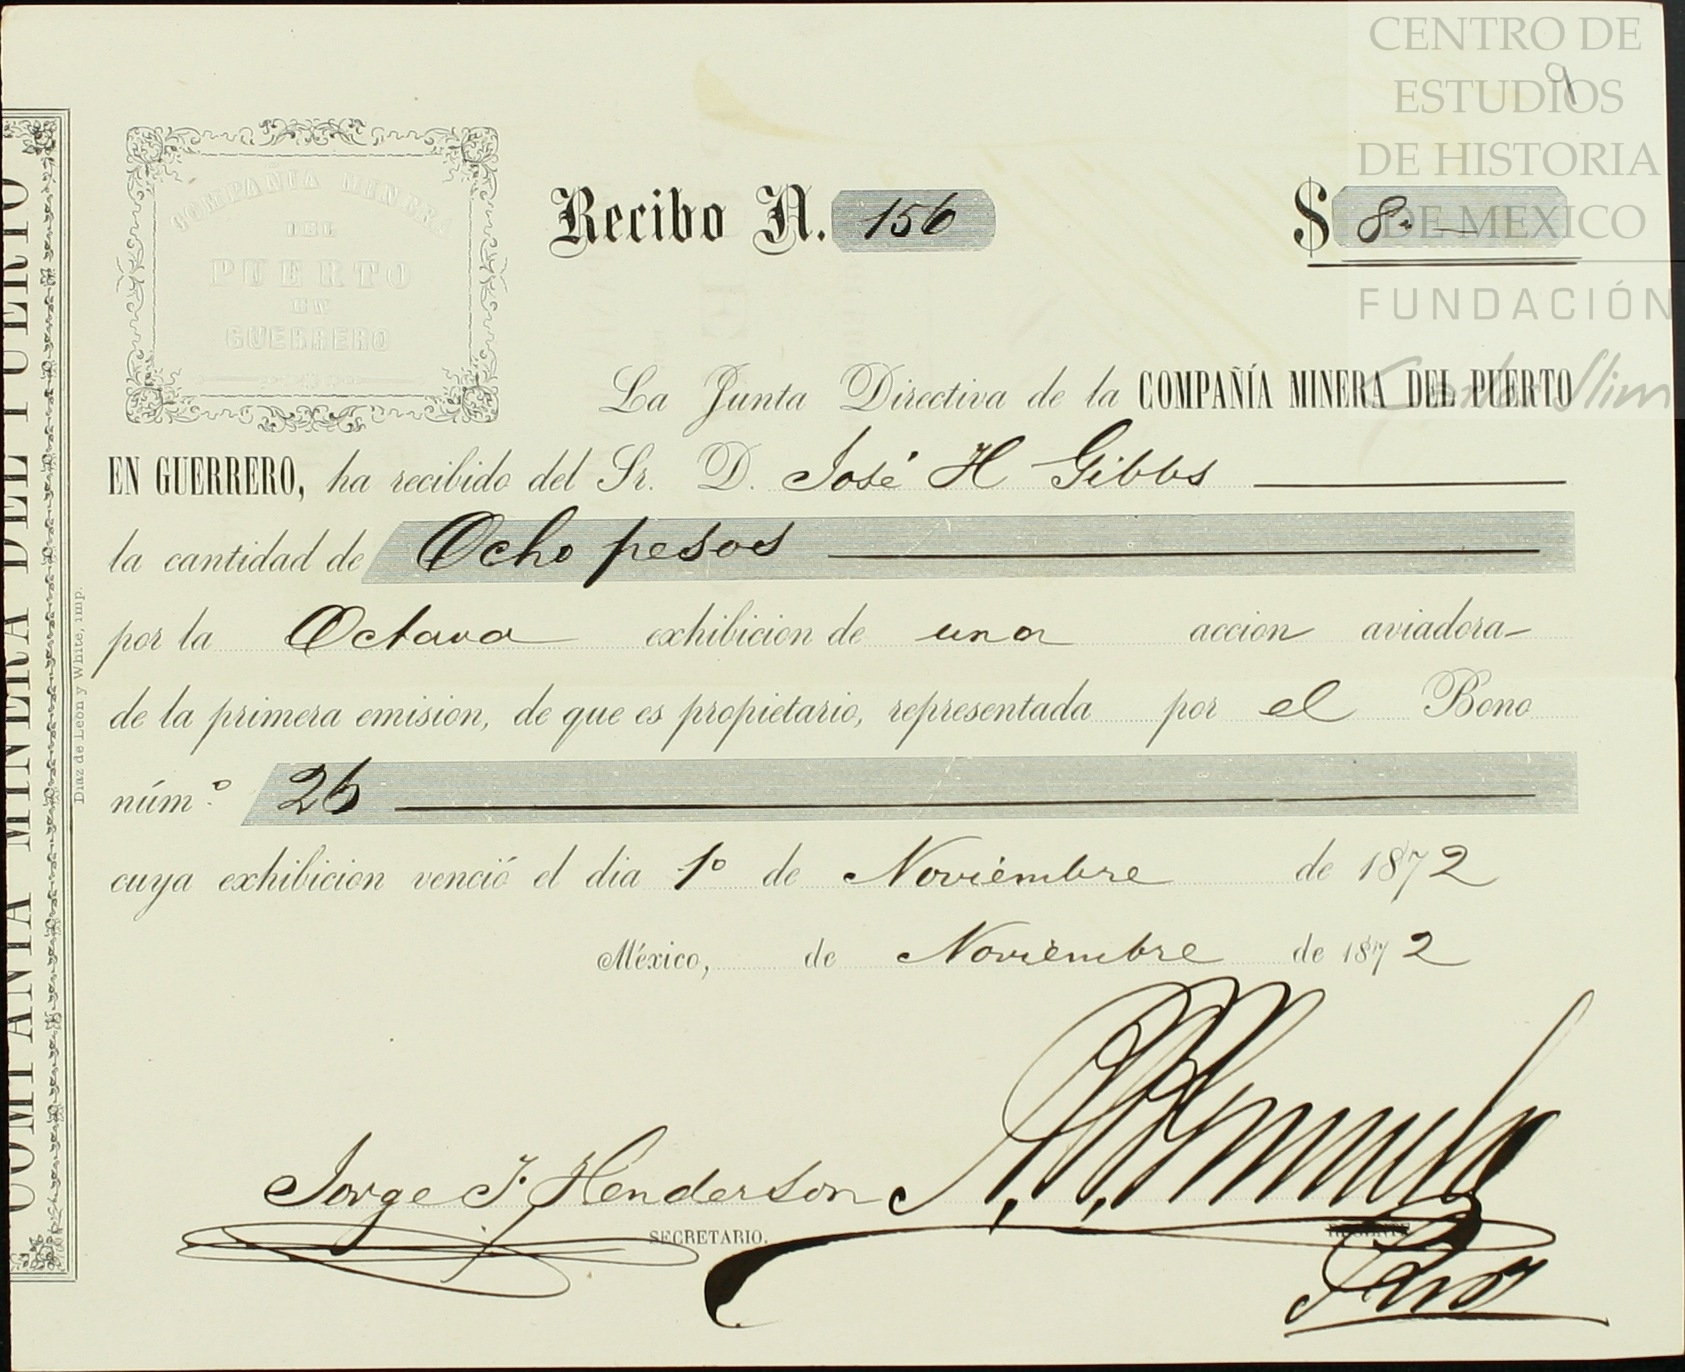 CENTRO DE
ESTUDIOS
DE HISTORIA
DE MEXICO
FUNDACIÓN
Carlos Slim
9
COMPAÑÍA MINERA
DEL
PUERTO
EN
GUERRERO
Recibo N. 156
$ 8.—
La Junta Directiva de la COMPAÑÍA MINERA DEL PUERTO
EN GUERRERO, ha recibido del Sr. D. José H Gibbs
la cantidad de Ocho pesos
por la Octava exhibicion de una accion aviadora
de la primera emision, de que es propietario, representada por el Bono
núm.º 26
cuya exhibicion venció el dia 1º de Noviembre de 1872
México, de Noviembre de 1872
Jorge F. Henderson
SECRETARIO.
COMPAÑIA MINERA DEL PUERTO
Diaz de Leon y White, imp.